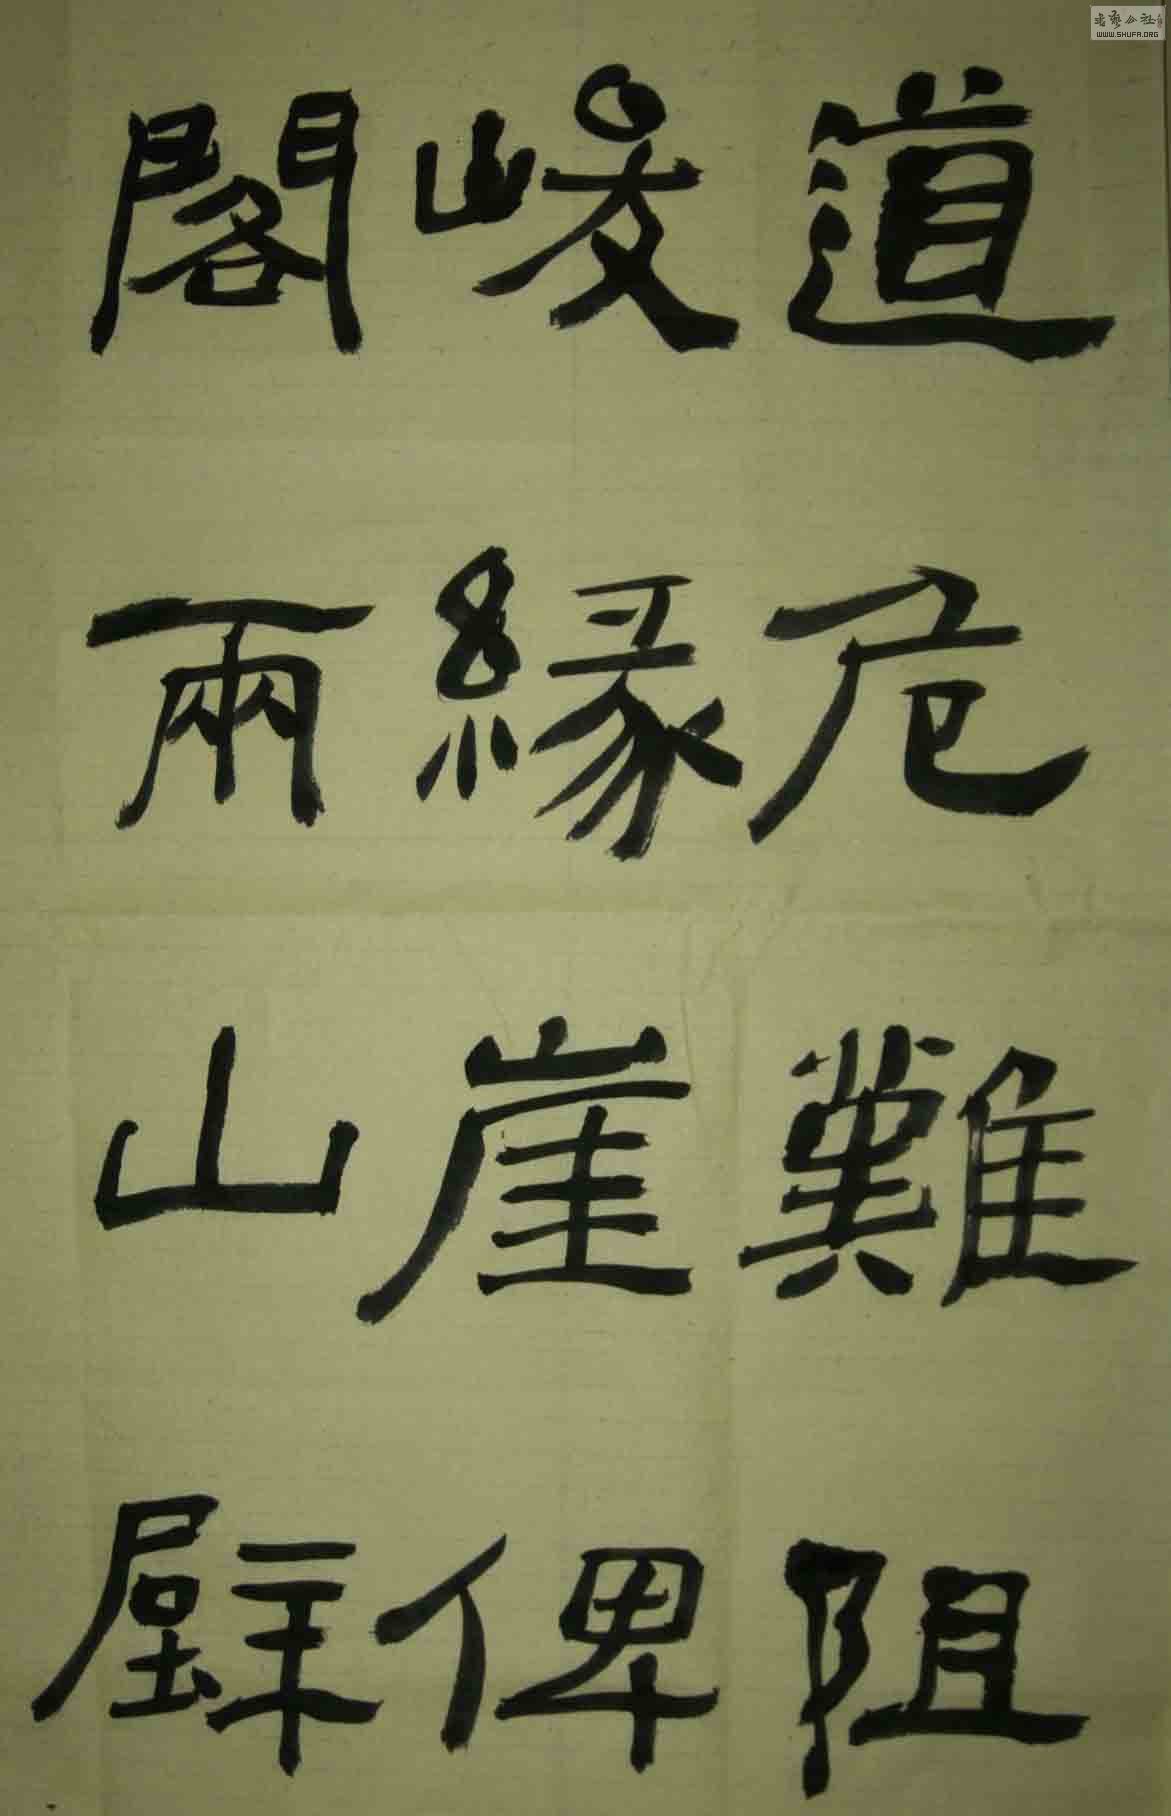 道危難阻
峻緣崖俾
閣兩山壁
書藝公社
WWW.SHUFA.ORG